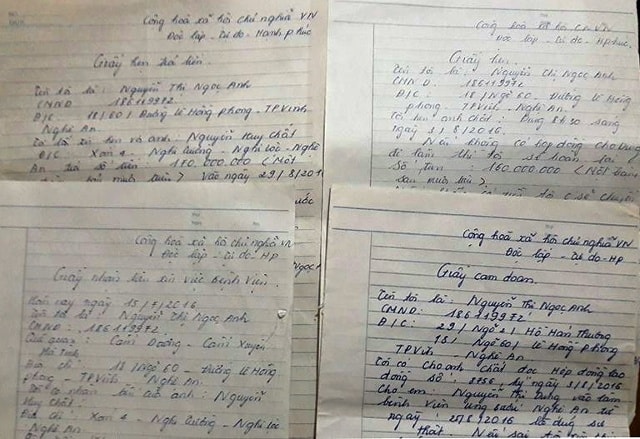 Cộng hoà xã hội chủ nghĩa VN
Độc lập - Tự do - Hạnh phúc
Giấy hẹn trả tiền.
Tên tôi là: Nguyễn Thị Ngọc Anh
CMND 186119972
Đ/C 18/60/ Đường Lê Hồng phong - TP Vinh
Nghệ An.
Tôi là xin hẹn với anh: Nguyễn Huy Chất
Đ/C: Xóm 4 - Nghi Hương - Nghi Lộc - Nghệ
An trả số tiền 150.000.000 (Một
Vào ngày 29/8/201
Cộng hoà xã hội CN VN
Độc lập - Tự do - H phúc
Giấy hẹn.
Tên tôi là: Nguyễn Thị Ngọc Anh
CMND: 186119972
Đ/C: 18/Ngõ 60 - Đường Lê Hồng
phong - TP Vinh - Nghệ An.
Tôi hẹn anh Chất: Đúng 8h30 sáng
ngày 31/8/2016.
Nếu không có hợp đồng cho Dung
đi làm thì tôi sẽ hoàn lại
Số tiền 150.000.000 (Một trăm
Cộng hoà xã hội chủ nghĩa VN
Độc lập - Tự do - HP
Giấy nhận tiền xin việc Bệnh Viện.
Hôm nay ngày 15/7/2016
Tên tôi là: Nguyễn Thị Ngọc Anh
CMND: 186119972
Quê quán: Cẩm Dương - Cẩm Xuyên
Hà Tĩnh
Địa chỉ: 18/Ngõ 60 - Đường Lê Hồng
phong - TP Vinh - Nghệ An.
Tôi có nhận tiền của anh: Nguyễn
Huy Chất
Địa chỉ: Xóm 4 - Nghi Hương - Nghi Lộc -
Nghệ An
Cộng hoà xã hội chủ nghĩa VN
Độc lập - Tự do - HP
Giấy cam đoan.
Tên tôi là: Nguyễn Thị Ngọc Anh
CMND: 186119972
Đ/C: 29/Ngõ 21 Hồ Hán Thương
18/ Ngõ 60/ Lê Hồng Phong
TP Vinh Nghệ An
Tôi có cho anh Chất đọc Hợp đồng lao
động số: ký ngày 31/8/2016
cho em: Nguyễn Thị Dung vào làm
bệnh viện Ung bướu Nghệ An từ
ngày: là đúng sự
thật.